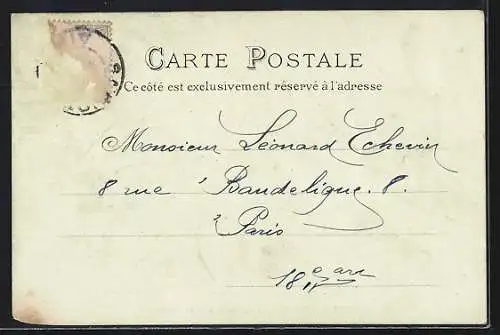 CARTE POSTALE
Ce côté est exclusivement réservé à l'adresse
Monsieur Léonard Echevin
8 rue Baudelique. 8.
Paris
18e arr